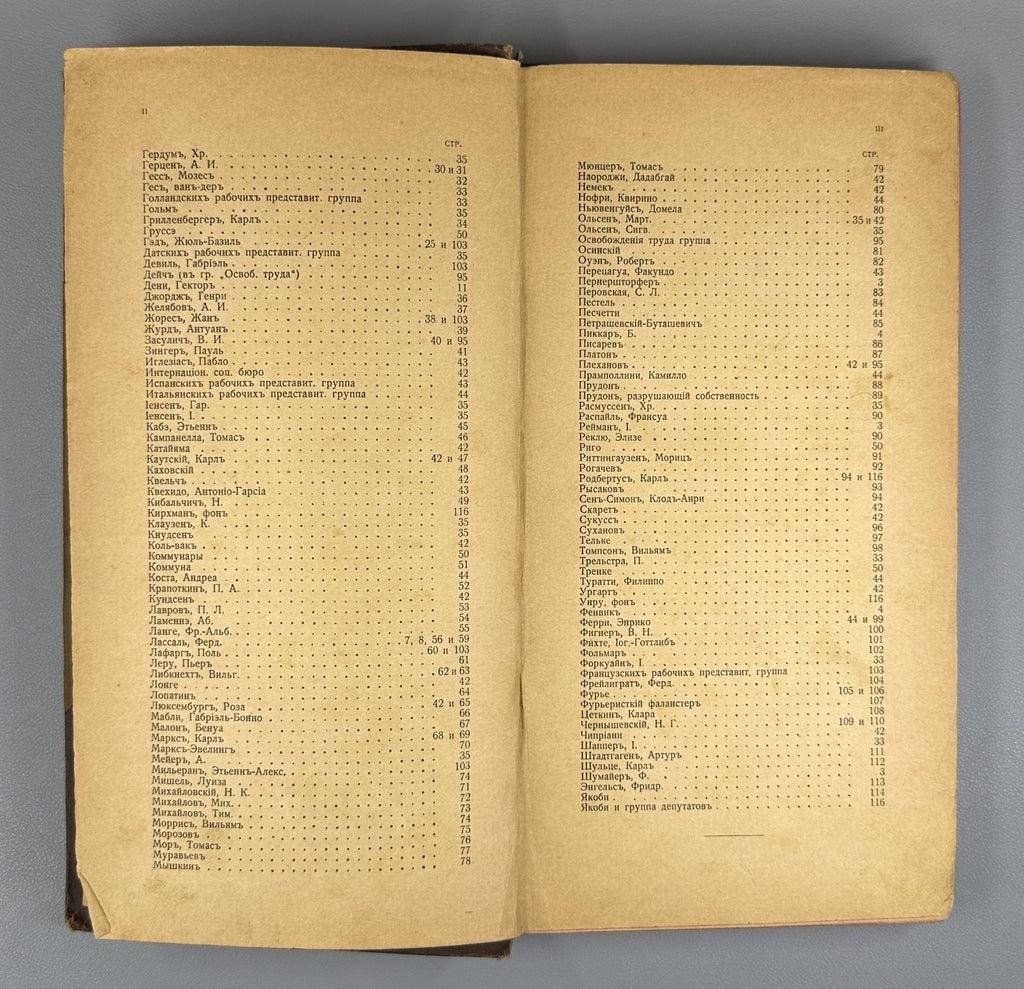 II
СТР.
Гердумъ, Хр. 35
Герценъ, А. И. 30 и 31
Гессъ, Мозесъ 32
Гесъ, ванъ-деръ 33
Голландскихъ рабочихъ представит. группа 33
Гольмъ 35
Грилленбергеръ, Карлъ 34
Груссэ 50
Гэдъ, Жюль-Базиль 25 и 103
Датскихъ рабочихъ представит. группа 35
Девиль, Габріэль 103
Дейчъ (въ гр. „Освоб. труда“) 95
Дени, Гекторъ 11
Джорджъ, Генри 36
Желябовъ, А. И. 37
Жоресъ, Жанъ 38 и 103
Журдъ, Антуанъ 39
Засуличъ, В. И. 40 и 95
Зингеръ, Пауль 41
Иглезіасъ, Пабло 43
Интернаціон. соц. бюро 42
Испанскихъ рабочихъ представит. группа 43
Итальянскихъ рабочихъ представит. группа 44
Іенсенъ, Гар. 35
Іенсенъ, І. 35
Кабэ, Этьеннъ 45
Кампанелла, Томасъ 46
Катайяма 42
Каутскій, Карлъ 42 и 47
Каховскій 48
Квельчъ 42
Квехидо, Антоніо-Гарсіа 43
Кибальчичъ, Н. 49
Кирхманъ, фонъ 116
Клаузенъ, К. 35
Кнудсенъ 35
Коль-вакъ 42
Коммунары 50
Коммуна 51
Коста, Андреа 44
Крапоткинъ, П. А. 52
Кундсенъ 42
Лавровъ, П. Л. 53
Ламеннэ, Аб. 54
Ланге, Фр.-Альб. 55
Лассаль, Ферд. 7, 8, 56 и 59
Лафаргъ, Поль 60 и 103
Леру, Пьеръ 61
Либкнехтъ, Вильг. 62 и 63
Лонге 42
Лопатинъ 64
Люксембургъ, Роза 42 и 65
Мабли, Габріэль-Бонно 66
Малонъ, Бенуа 67
Марксъ, Карлъ 68 и 69
Марксъ-Эвелингъ 70
Мейеръ, А. 35
Мильеранъ, Этьеннъ-Алекс. 103
Мишель, Луиза 74
Михайловскій, Н. К. 71
Михайловъ, Мих. 72
Михайловъ, Тим. 73
Моррисъ, Вильямъ 74
Морозовъ 75
Моръ, Томасъ 76
Муравьевъ 77
Мышкинъ 78
III
СТР.
Мюнцеръ, Томасъ 79
Наороджи, Дадабгай 42
Немекъ 42
Нофри, Квирино 44
Ньювенгуйсъ, Домела 80
Ольсенъ, Март. 35 и 42
Ольсенъ, Сигв. 35
Освобожденія труда группа 95
Осинскій 81
Оуэнъ, Робертъ 82
Перецагуа, Факундо 43
Пернершторферъ 3
Перовская, С. Л. 83
Пестель 84
Песчетти 44
Петрашевскій-Буташевичъ 85
Пиккаръ, Б. 4
Писаревъ 86
Платонъ 87
Плехановъ 42 и 95
Прамполлини, Камилло 44
Прудонъ 88
Прудонъ, разрушающій собственность 89
Расмуссенъ, Хр. 35
Распайль, Франсуа 90
Рейманъ, І. 3
Реклю, Элизе 90
Риго 50
Риттингаузенъ, Морицъ 91
Рогачевъ 92
Родбертусъ, Карлъ 94 и 116
Рысаковъ 93
Сенъ-Симонъ, Клодъ-Анри 94
Скаретъ 42
Сукуссъ 42
Сухановъ 96
Тельке 97
Томпсонъ, Вильямъ 98
Трельстра, П. 33
Тренке 50
Туратти, Филиппо 44
Ургартъ 42
Унру, фонъ 116
Фенвикъ 4
Ферри, Энрико 44 и 99
Фигнеръ, В. Н. 100
Фихте, Іог.-Готтлибъ 101
Фольмаръ 102
Форкуайнъ, І. 33
Французскихъ рабочихъ представит. группа 103
Фрейлигратъ, Ферд. 104
Фурье 105 и 106
Фурьеристкій фаланстеръ 107
Цеткинъ, Клара 108
Чернышевскій, Н. Г. 109 и 110
Чипріани 42
Шапперъ, І. 33
Штадтгагенъ, Артуръ 111
Шульце, Карлъ 112
Шумайеръ, Ф. 3
Энгельсъ, Фридр. 113
Якоби 114
Якоби и группа депутатовъ 116